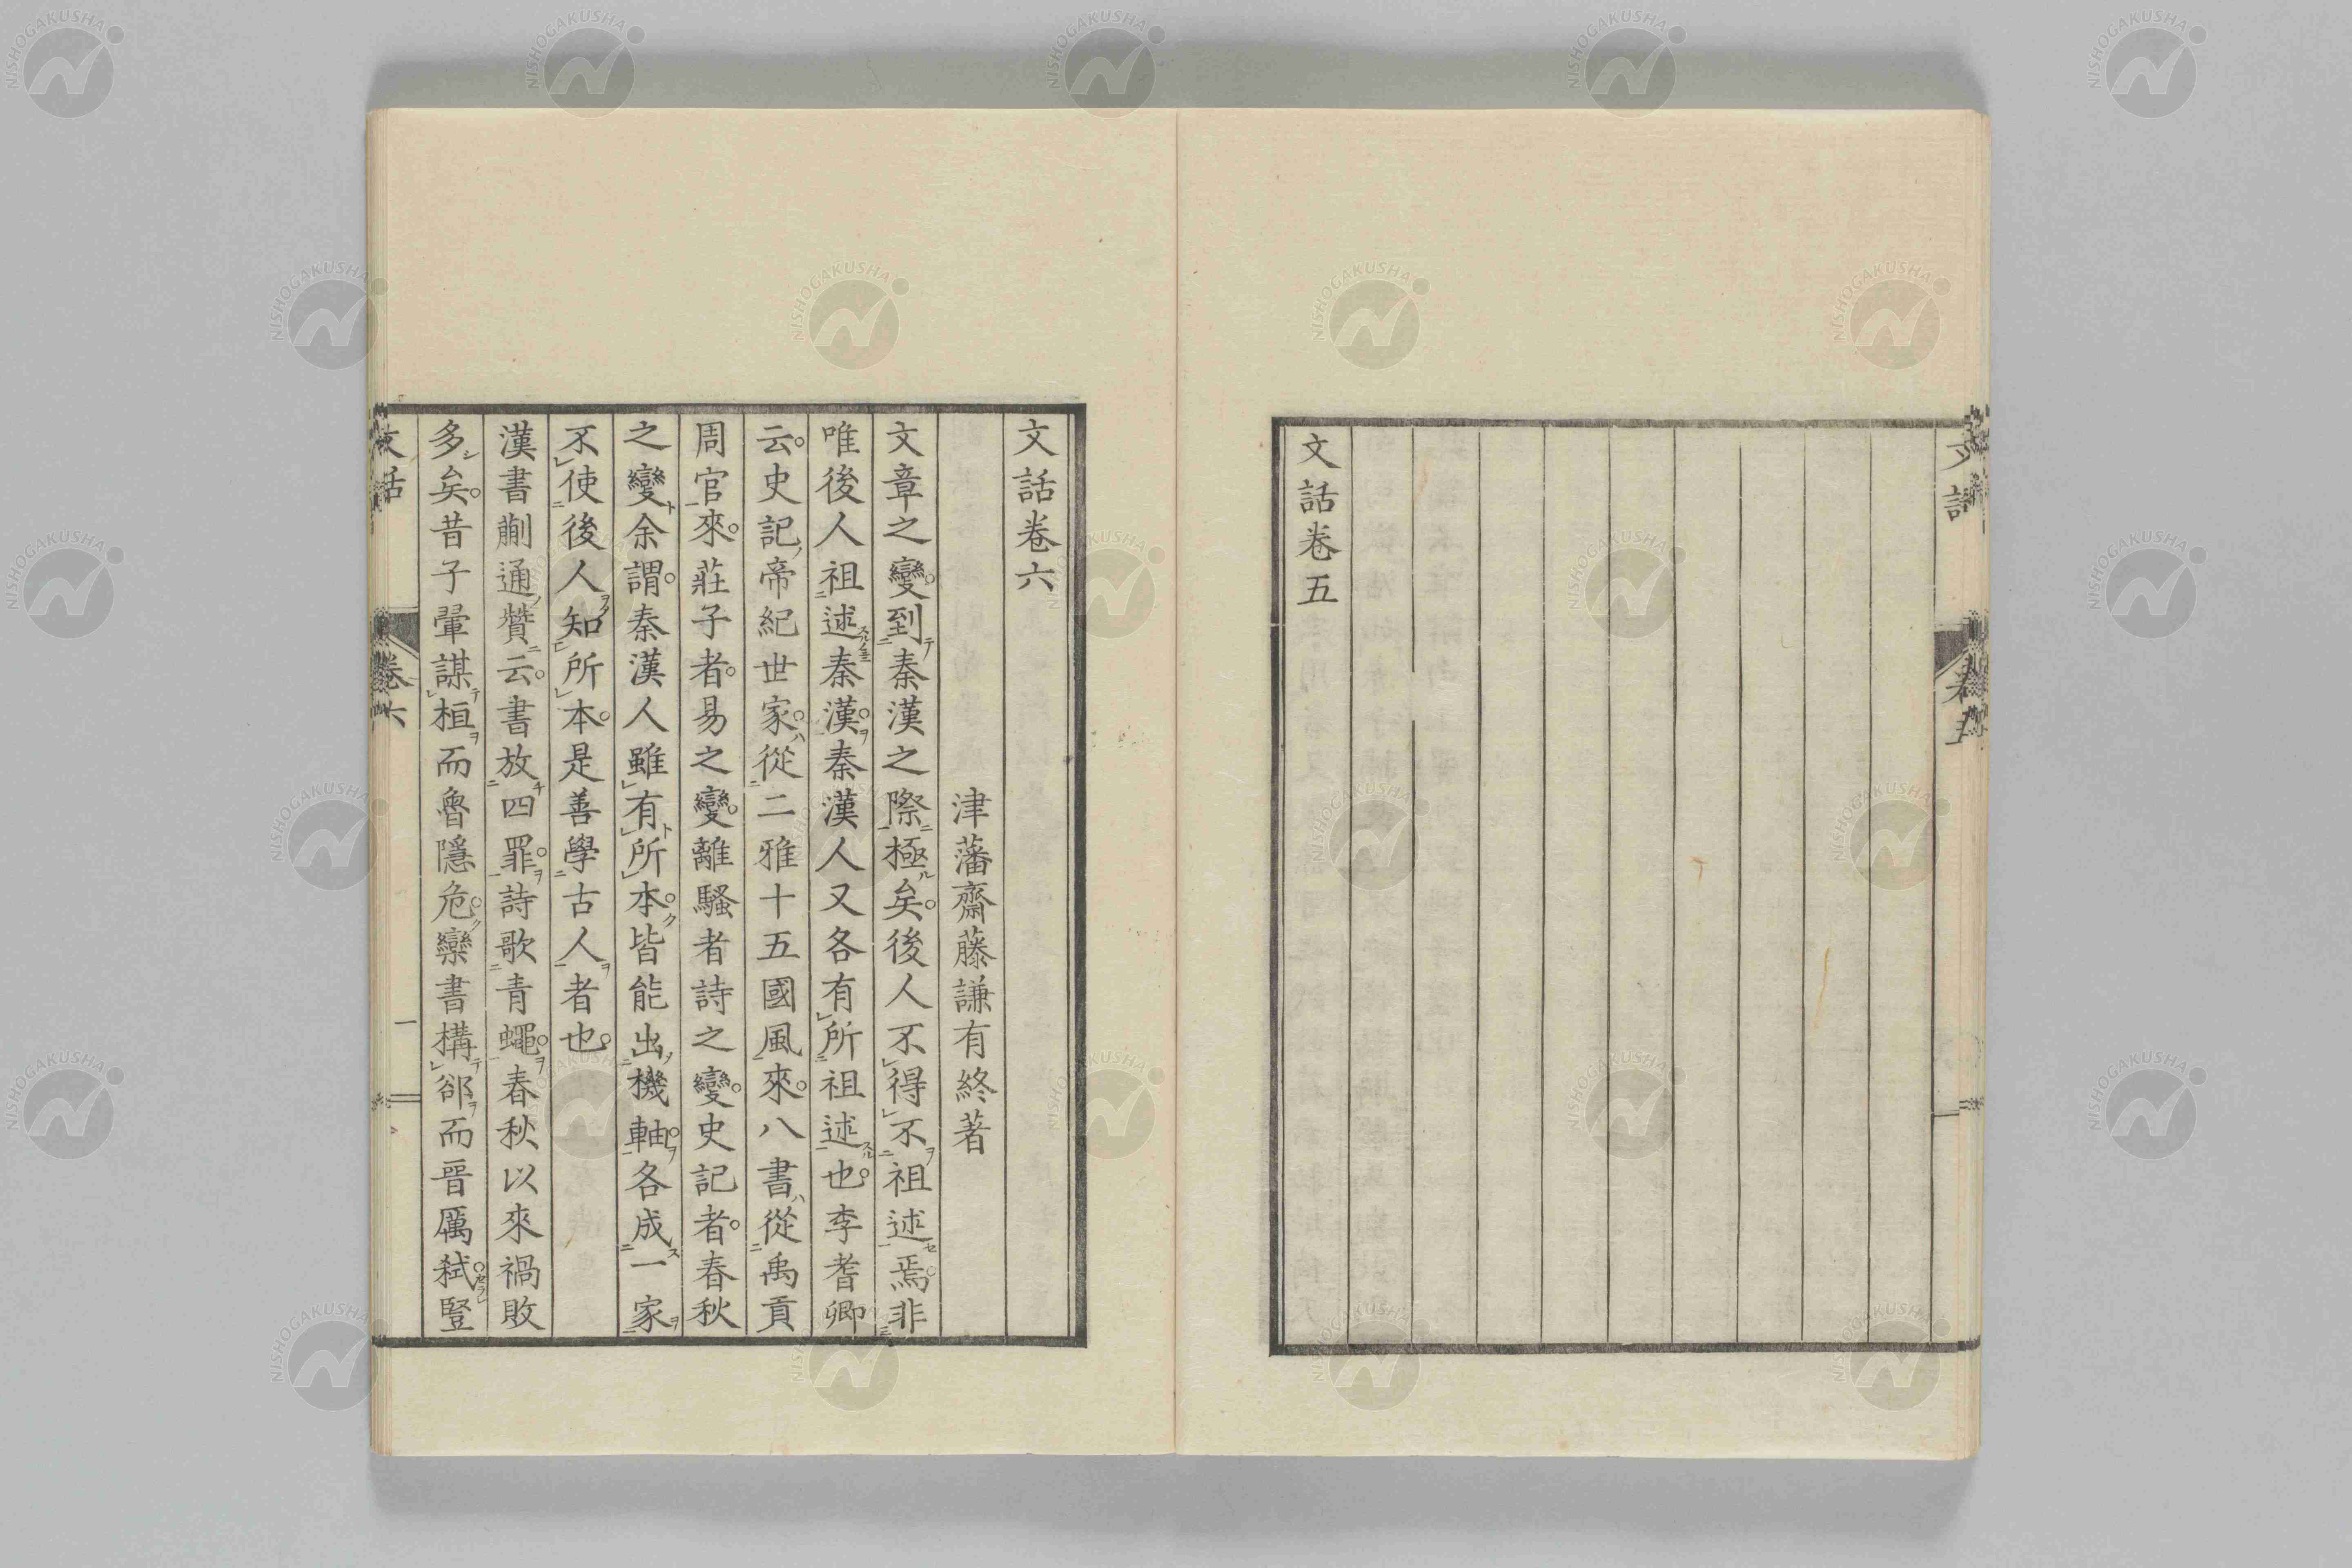 文話卷五
文話卷六
津藩齋藤謙有終著
文章之變。到秦漢之際極矣。後人不得不祖述焉。非
唯後人祖述秦漢。秦漢人又各有所祖述也。李耆卿
云。史記帝紀世家。從二雅十五國風來。八書從禹貢
周官來。莊子者。易之變。離騷者詩之變。史記者。春秋
之變余謂。秦漢人雖有所本。皆能出機軸。各成一家
不使後人知所本。是善學古人者也。
漢書蒯通贊云。書放四罪。詩歌青蠅。春秋以來禍敗
多矣。昔子翬謀桓而魯隱危。欒書構郤而晉厲弒。豎
文話 卷六 一